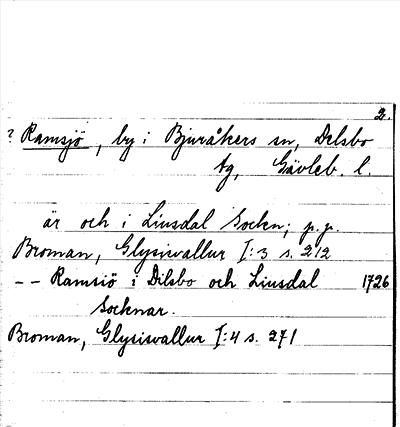 2.
? Ramsjö, by i Bjuråkers sn, Delsbo
tg, Gävleb. l.
är och i Liusdal Sockn; p.p.
Broman, Glysisvallur I:3 s. 212
-- Ramsiö i Dilsbo och Liusdal 1726
Socknar.
Broman, Glysisvallur I:4 s. 271